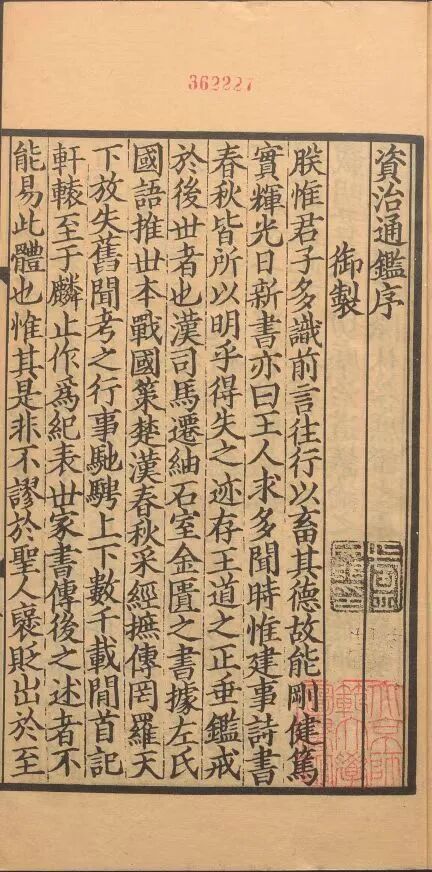 362227
資治通鑑序
御製
朕惟君子多識前言往行以畜其德故能剛健篤
實輝光日新書亦曰王人求多聞時惟建事詩書
春秋皆所以明乎得失之迹存王道之正垂鑑戒
於後世者也漢司馬遷紬石室金匱之書據左氏
國語推世本戰國策楚漢春秋采經摭傳罔羅天
下放失舊聞考之行事馳騁上下數千載閒首記
軒轅至于麟止作爲紀表世家書傳後之述者不
能易此體也惟其是非不謬於聖人襃貶出於至